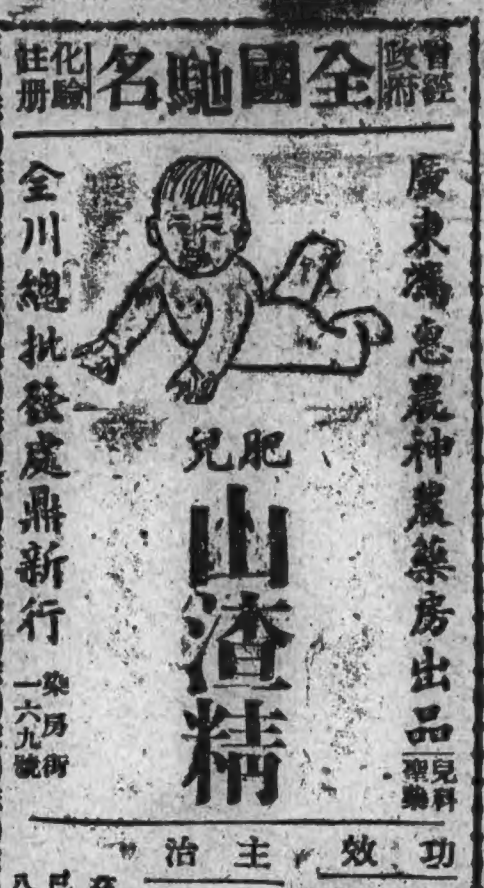 曾經
政府
全國馳名
化驗
註册
廣東馮惠農神農藥房出品
兒科
聖藥
肥兒
山渣精
全川總批發處鼎新行
染房街
一六九號
功效
主治